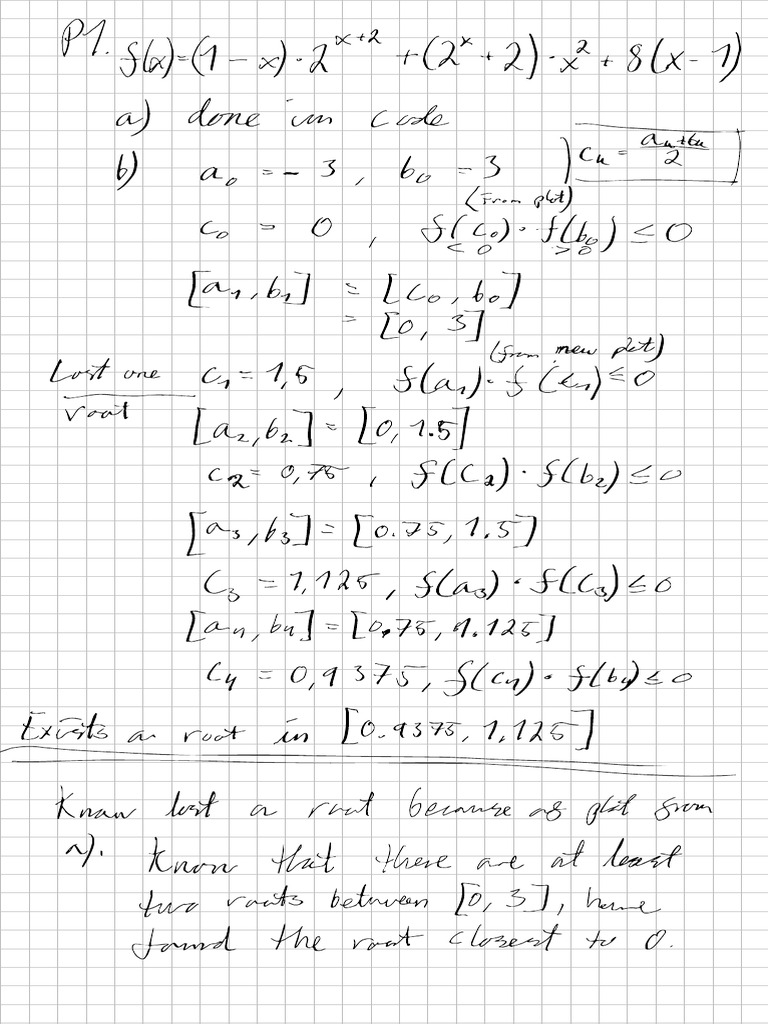 P1. f(x)=(1-x)·2^{x+2} +(2^x+2)·x^2+8(x-1)
a) done im code
b) a_0 = -3, b_0 - 3 ) c_n = \frac{a_n+b_n}{2}
(From plot)
c_0 = 0 , f(c_0)·f(b_0) ≤ 0
<0 >0
[a_1,b_1] = [c_0, b_0]
= [0, 3]
(from new plot)
Lost one c_1 = 1,5 , f(a_1)·f(c_1) ≤ 0
root
[a_2,b_2] = [0, 1.5]
c_2 = 0,75 , f(c_2)·f(b_2) ≤ 0
[a_3,b_3] = [0.75, 1.5]
C_3 = 1,125, f(a_3)·f(C_3) ≤ 0
[a_4,b_4] = [0,75, 1.125]
C_4 = 0,9375, f(c_4)·f(b_4) ≤ 0
Exists a root in [0.9375, 1,125]
Know lost a root because of plot from
a). Know that there are at least
two roots between [0, 3], have
found the root closest to 0.